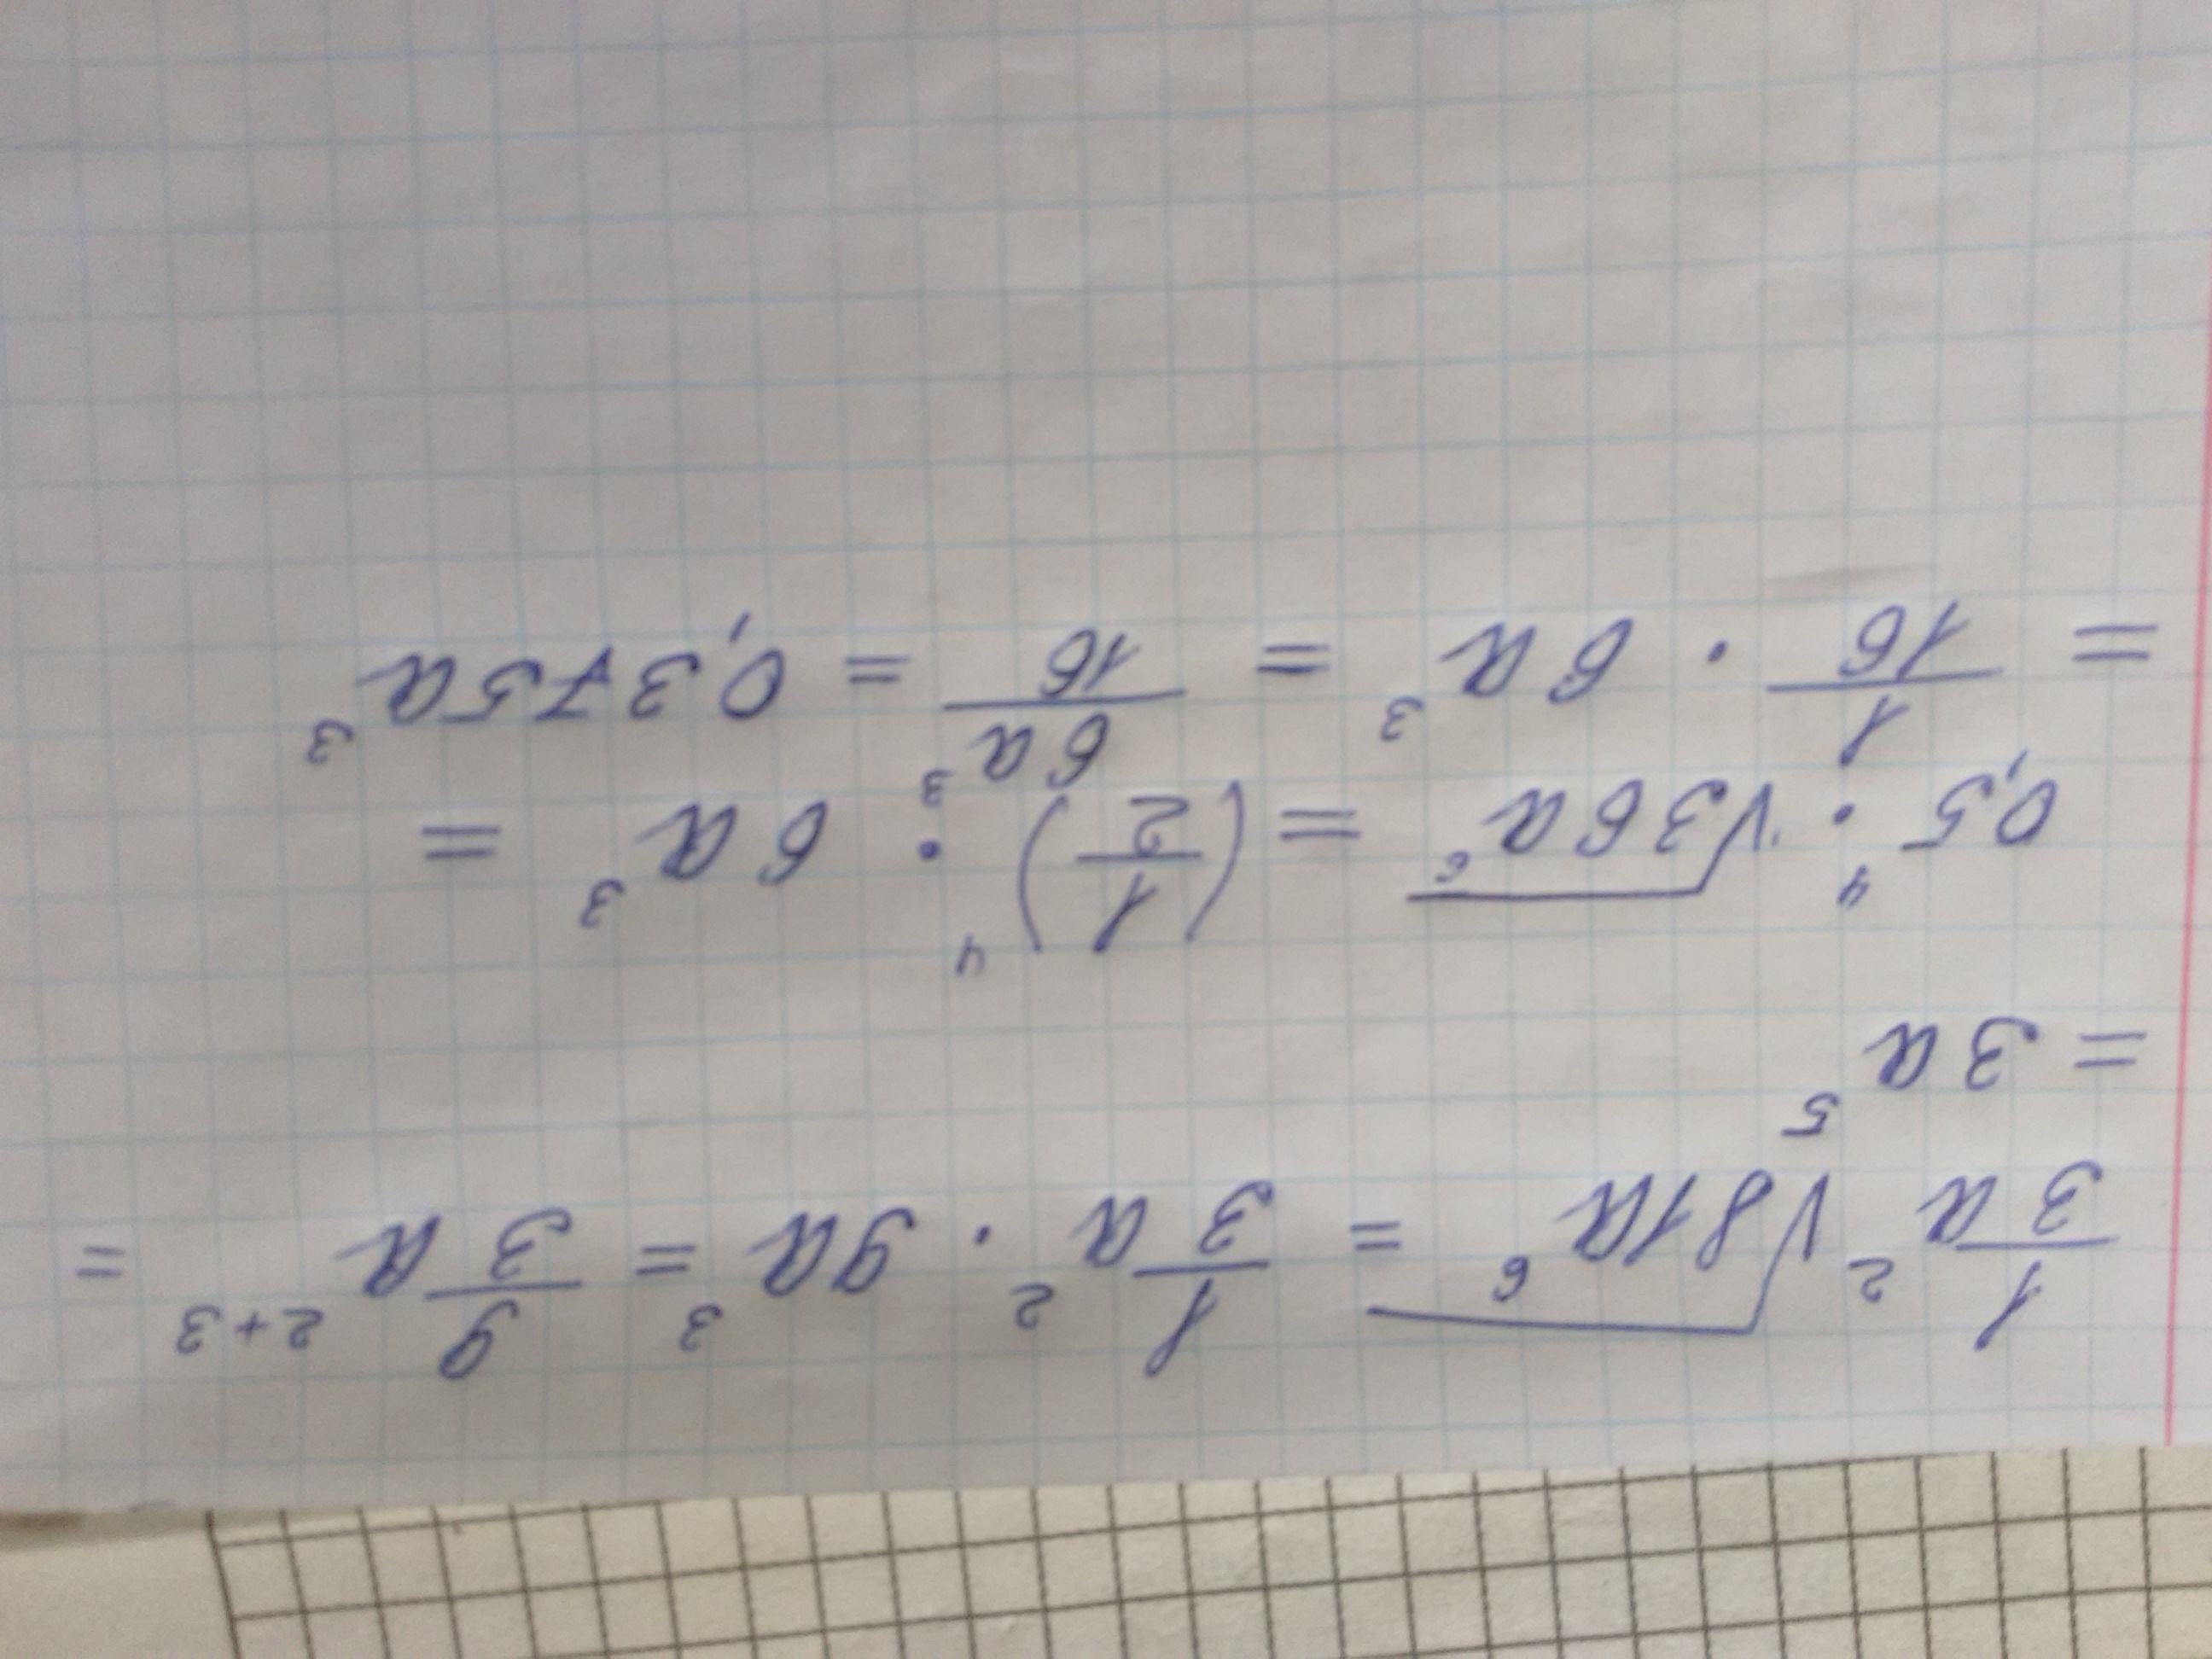 1/3 a² √81a⁶ = 1/3 a² · 9a³ = 9/3 a²⁺³ =
= 3a⁵
0,5⁴ · √36a⁶ = (1/2)⁴ · 6a³ =
= 1/16 · 6a³ = 6a³/16 = 0,375a³